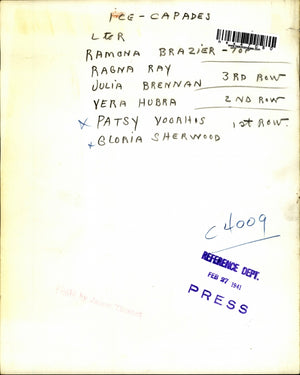 ICE-CAPADES
L to R
RAMONA BRAZIER - TOP
RAGNA RAY
JULIA BRENNAN 3RD ROW
VERA HUBRA 2ND ROW
x PATSY VOORHIS 1st ROW.
x GLORIA SHERWOOD
C4009
REFERENCE DEPT.
FEB 27 1941
PRESS
Photo by